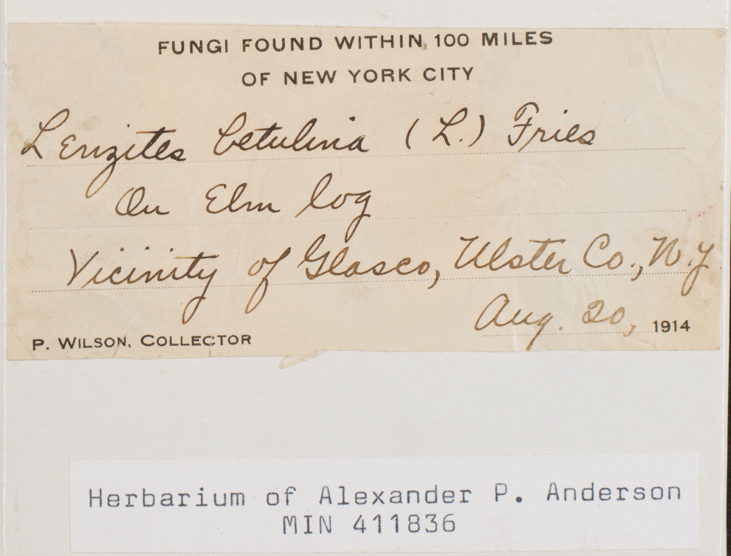 FUNGI FOUND WITHIN 100 MILES
OF NEW YORK CITY
Lenzites betulina (L.) Fries
On Elm log
Vicinity of Glasco, Ulster Co., N.Y
Aug. 20, 1914
P. WILSON, COLLECTOR
Herbarium of Alexander P. Anderson
MIN 411836